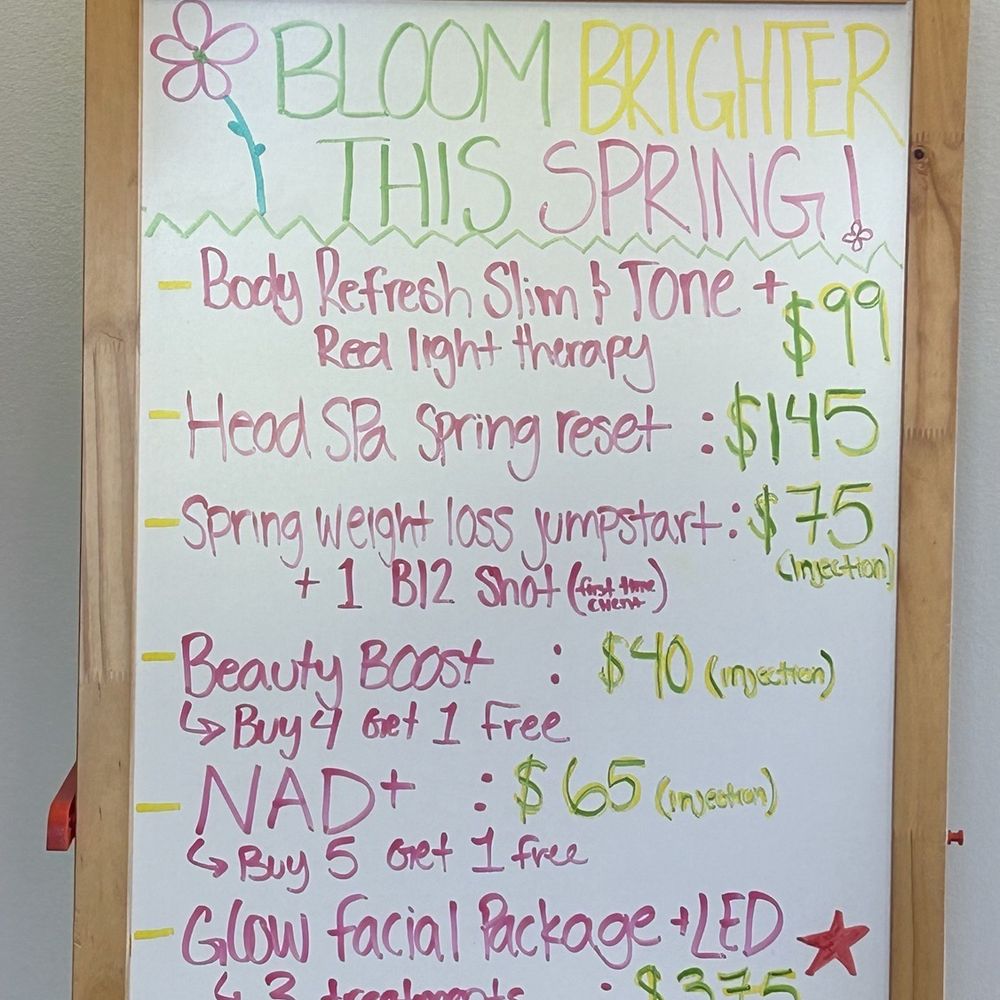 BLOOM BRIGHTER
THIS SPRING!
- Body Refresh Slim & Tone + $99
Red light therapy
- Head SPa Spring reset : $145
- Spring weight loss jumpstart : $75
(Injection)
+ 1 B12 Shot (first time client)
- Beauty BOOst : $40 (injection)
↳ Buy 4 Get 1 free
- NAD+ : $65 (injection)
↳ Buy 5 Get 1 free
- Glow facial Package + LED
↳ 3 treatments : $375